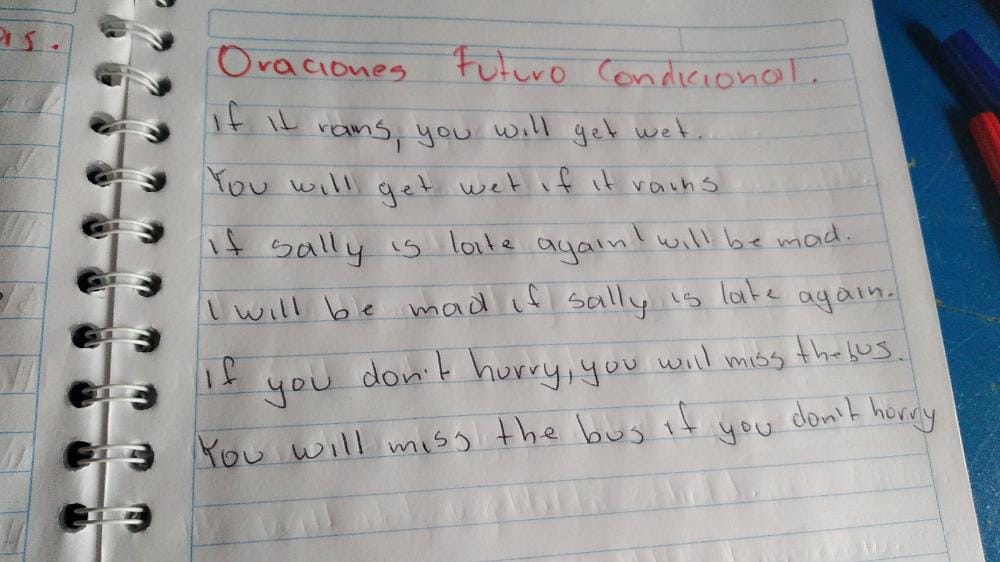 as.
Oraciones Futuro Condicional.
If it rains, you will get wet.
You will get wet if it rains
if sally is late again I will be mad.
I will be mad if sally is late again.
If you don't hurry, you will miss the bus.
You will miss the bus if you don't hurry